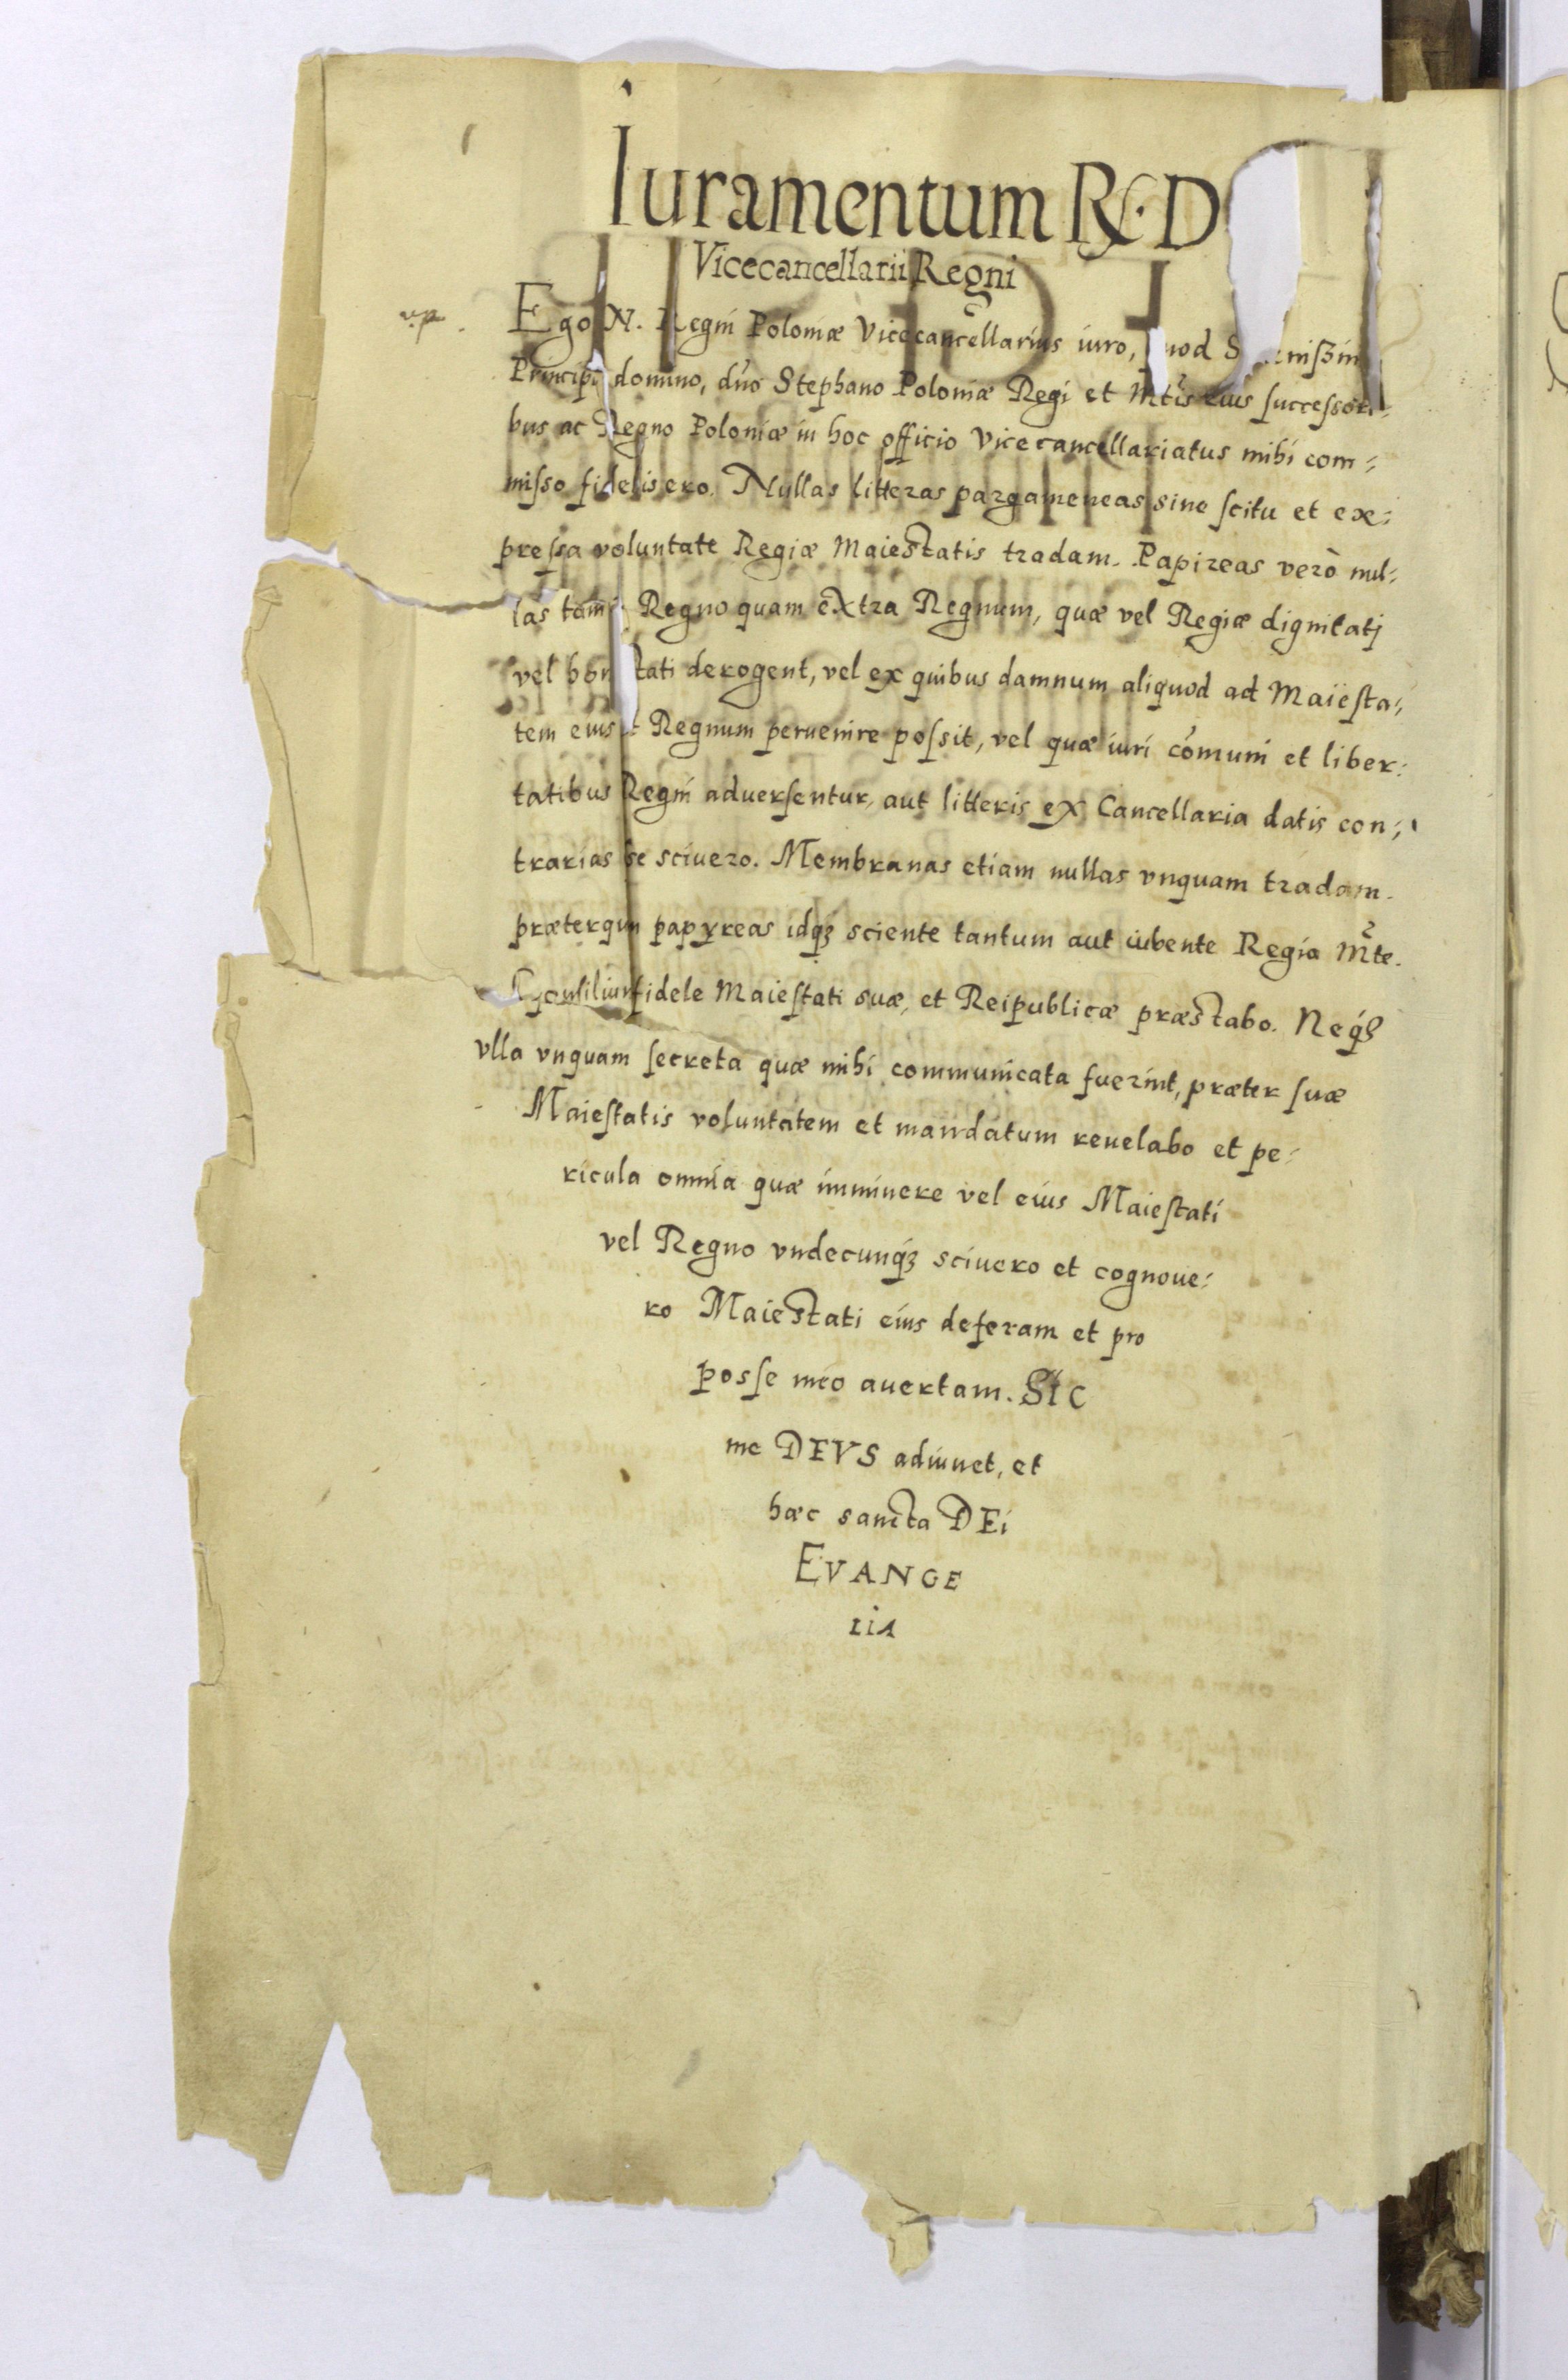 Iuramentum R. D
Vicecancellarii Regni
Ego N. Regni Poloniæ Vicecancellarius iuro, quod
Principi domino, dño Stephano Poloniæ Regi et Mtis eius successori-
bus ac Regno Poloniæ in hoc officio Vicecancellariatus mihi com-
misso fidelis ero. Nullas litteras pargameneas sine scitu et ex-
pressa voluntate Regiæ Maiestatis tradam. Papireas verò nul-
las tam Regno quam extra Regnum, quæ vel Regiæ dignitatj
vel derogent, vel ex quibus damnum aliquod ad Maiesta-
tem eius Regnum peruenire possit, vel quæ iuri cõmuni et liber-
tatibus Regni aduersentur, aut litteris ex Cancellaria datis con-
trarias se scivero. Membranas etiam nullas vnquam tradam
præterqm papyreas idqʒ sciente tantum aut iubente Regia Mte.
Consilium fidele Maiestati suæ, et Reipublicæ præstabo. Neqʒ
vlla vnquam secreta quæ mihi communicata fuerint, præter suæ
Maiestatis voluntatem et mandatum reuelabo et pe-
ricula omnia quæ imminere vel eius Maiestati
vel Regno vndecunqʒ scivero et cognoue-
ro Maiestati eius deferam et pro
posse meo auertam. SIC
me DEVS adiuuet, et
hæc sancta DEi
EVANGE
LiA